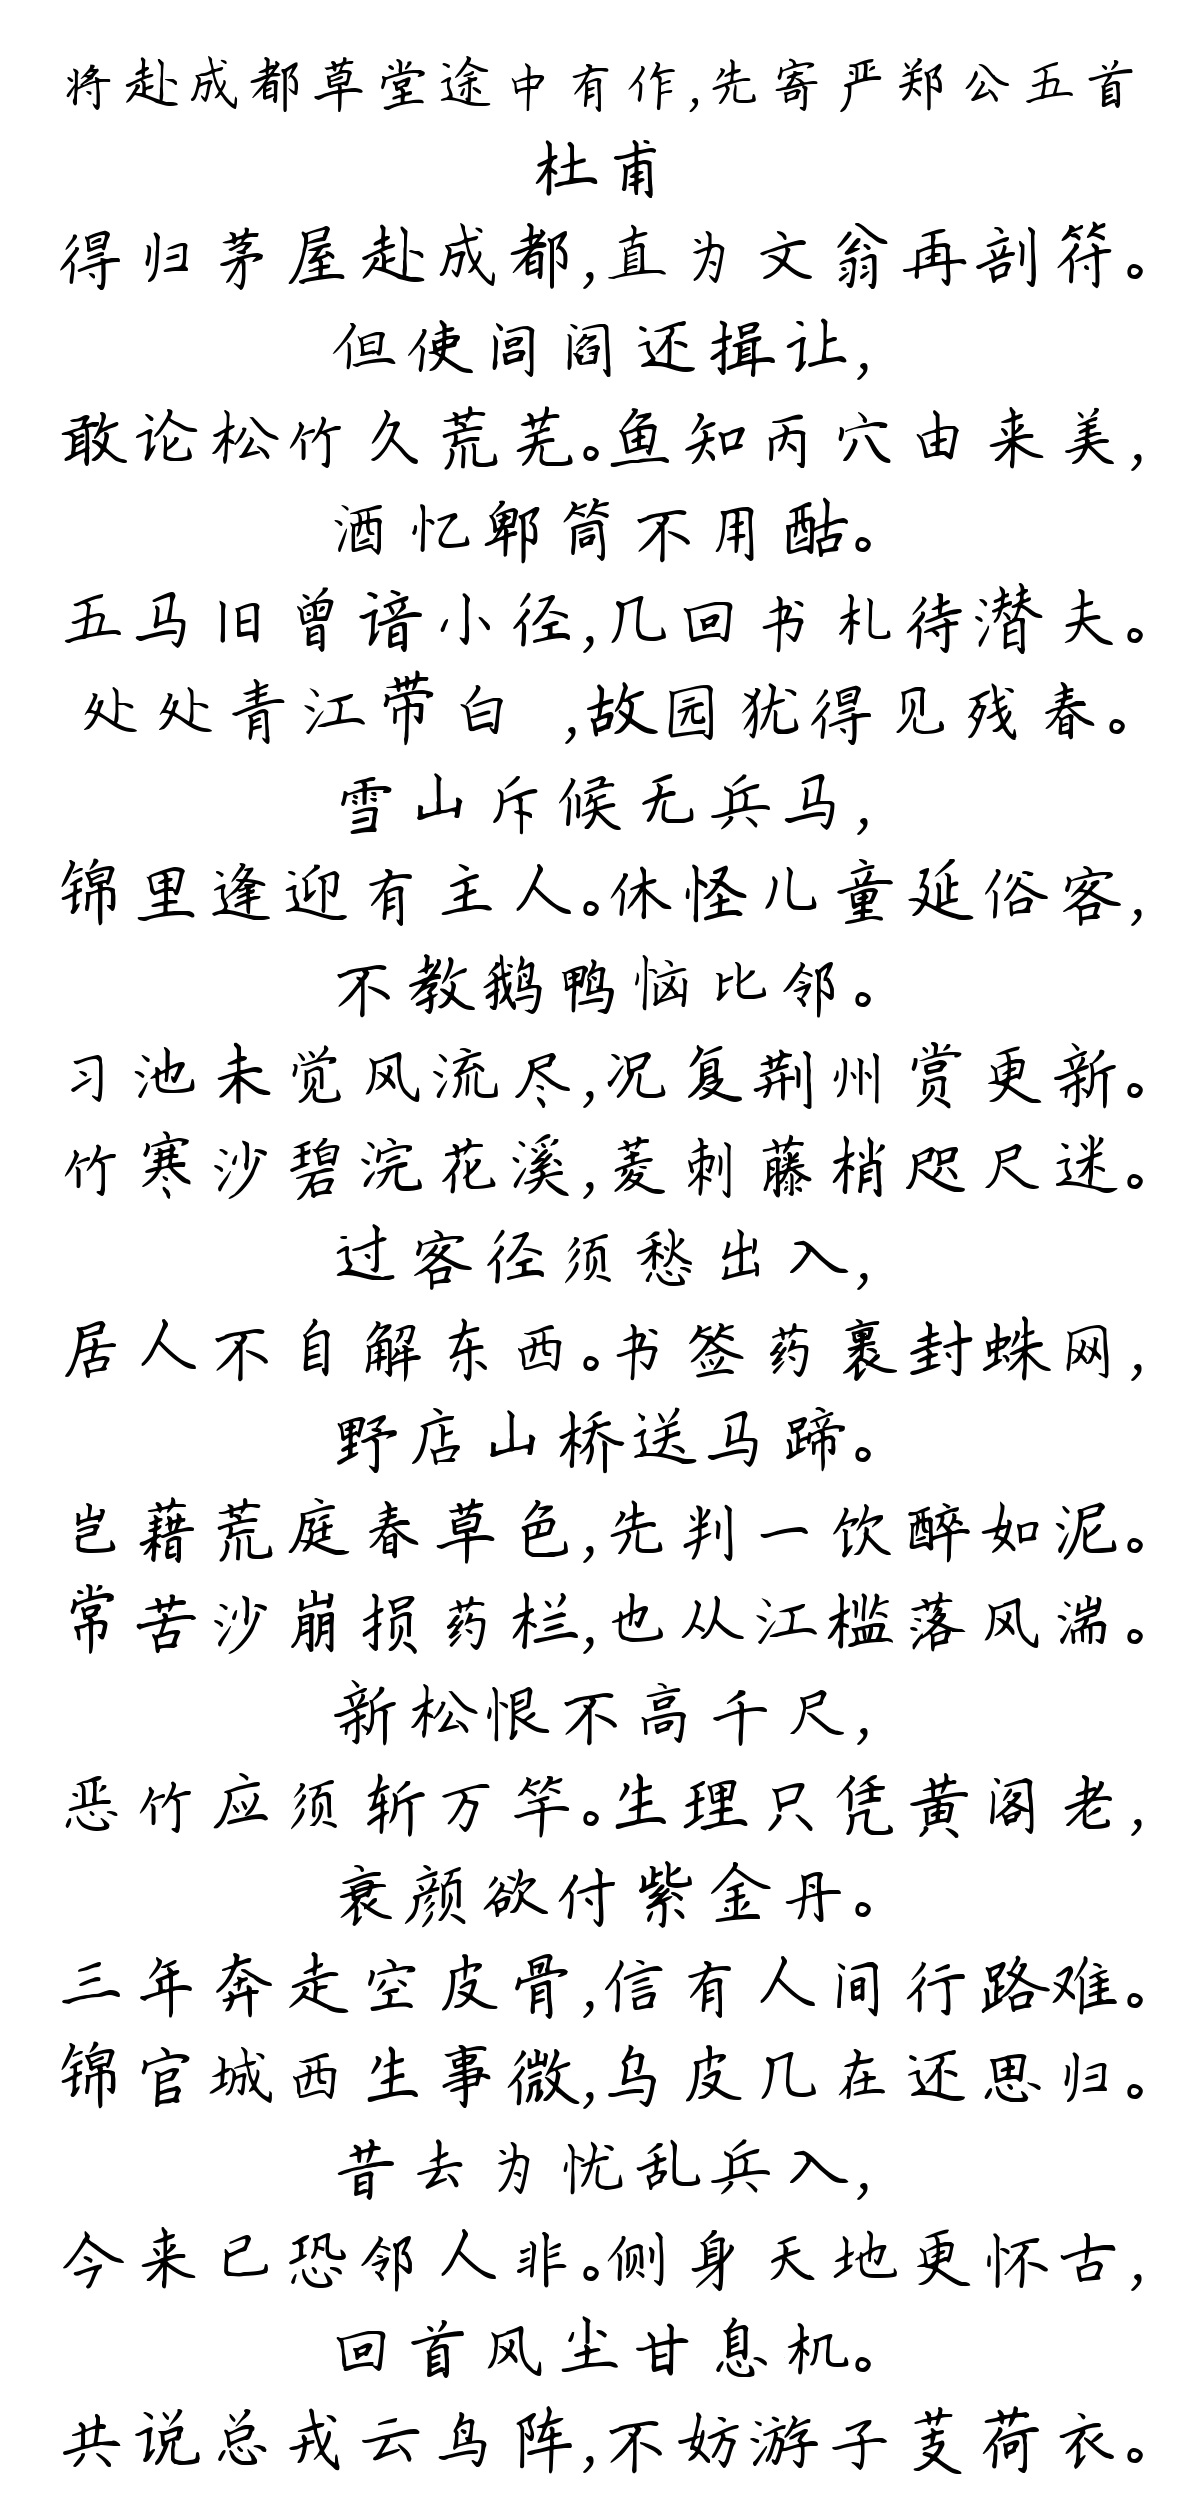 将赴成都草堂途中有作,先寄严郑公五首
杜甫
得归茅屋赴成都,直为文翁再剖符。
但使闾阎还揖让,
敢论松竹久荒芜。鱼知丙穴由来美,
酒忆郫筒不用酤。
五马旧曾谙小径,几回书札待潜夫。
处处青江带白 ,故园犹得见残春。
雪山斥候无兵马,
锦里逢迎有主人。休怪儿童延俗客,
不教鹅鸭恼比邻。
习池未觉风流尽,况复荆州赏更新。
竹寒沙碧浣花溪,菱刺藤梢咫尺迷。
过客径须愁出入,
居人不自解东西。书签药裹封蛛网,
野店山桥送马蹄。
岂藉荒庭春草色,先判一饮醉如泥。
常苦沙崩损药栏,也从江槛落风湍。
新松恨不高千尺,
恶竹应须斩万竿。生理只凭黄阁老,
衰颜欲付紫金丹。
三年奔走空皮骨,信有人间行路难。
锦官城西生事微,乌皮几在还思归。
昔去为忧乱兵入,
今来已恐邻人非。侧身天地更怀古,
回首风尘甘息机。
共说总戎云鸟阵,不妨游子芰荷衣。